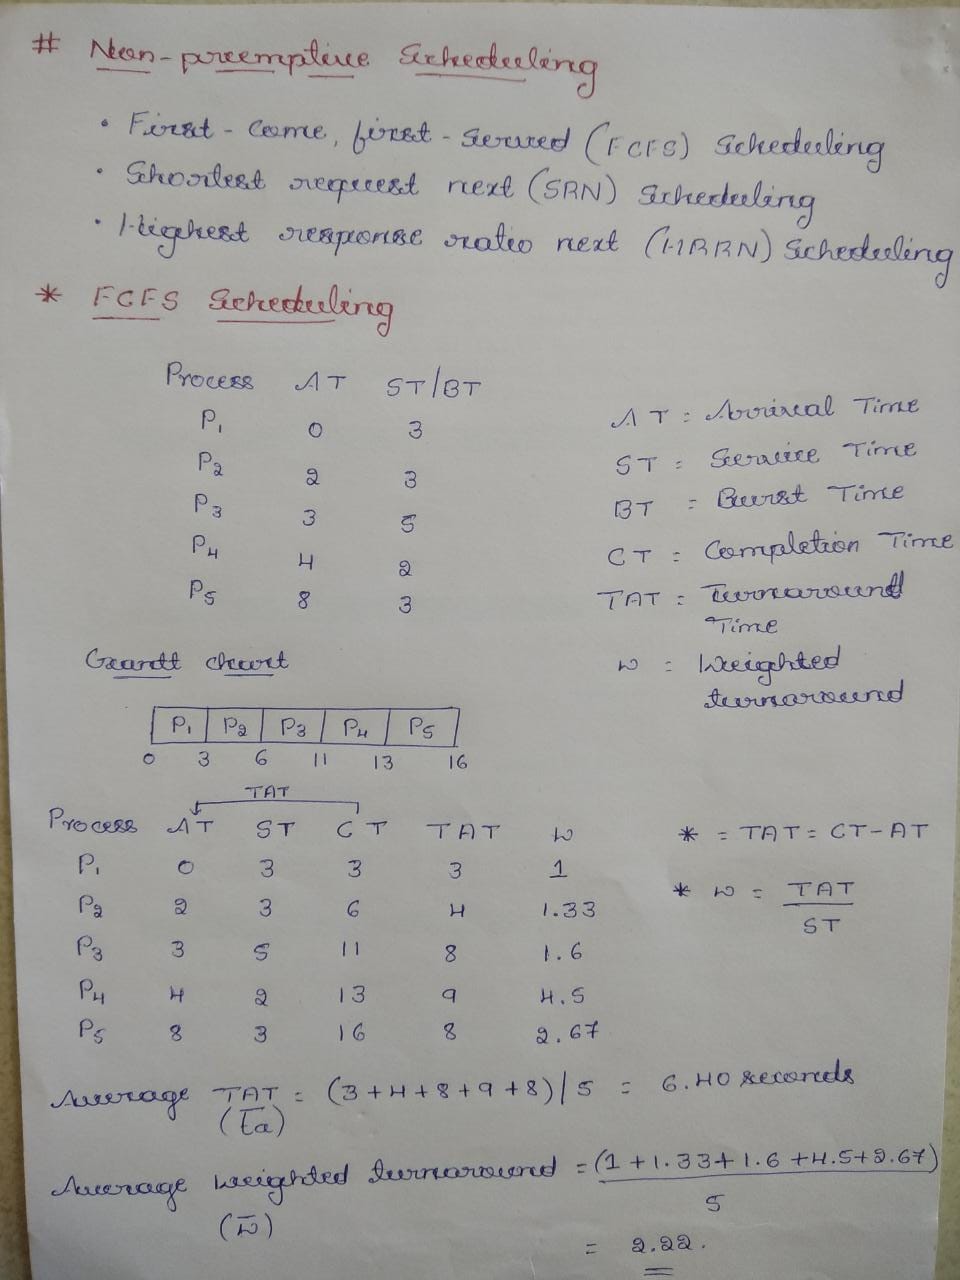 # Non-preemptive Scheduling
• First-come, first-served (FCFS) Scheduling
• Shortest request next (SRN) Scheduling
• Highest response ratio next (HRRN) Scheduling
* FCFS Scheduling
Process AT ST/BT
P1 0 3
P2 2 3
P3 3 5
P4 4 2
P5 8 3
AT = Arrival Time
ST = Service Time
BT = Burst Time
CT = Completion Time
TAT = Turnaround
Time
w = Weighted
turnaround
Grantt chart
P1 P2 P3 P4 P5
0 3 6 11 13 16
TAT
Process AT ST CT TAT w
P1 0 3 3 3 1
P2 2 3 6 4 1.33
P3 3 5 11 8 1.6
P4 4 2 13 9 4.5
P5 8 3 16 8 2.67
* = TAT = CT-AT
* w = TAT
ST
Average TAT = (3+4+8+9+8)/5 = 6.40 seconds
(t̅a)
Average weighted turnaround = (1+1.33+1.6+4.5+2.67)
(w̅) 5
= 2.22.